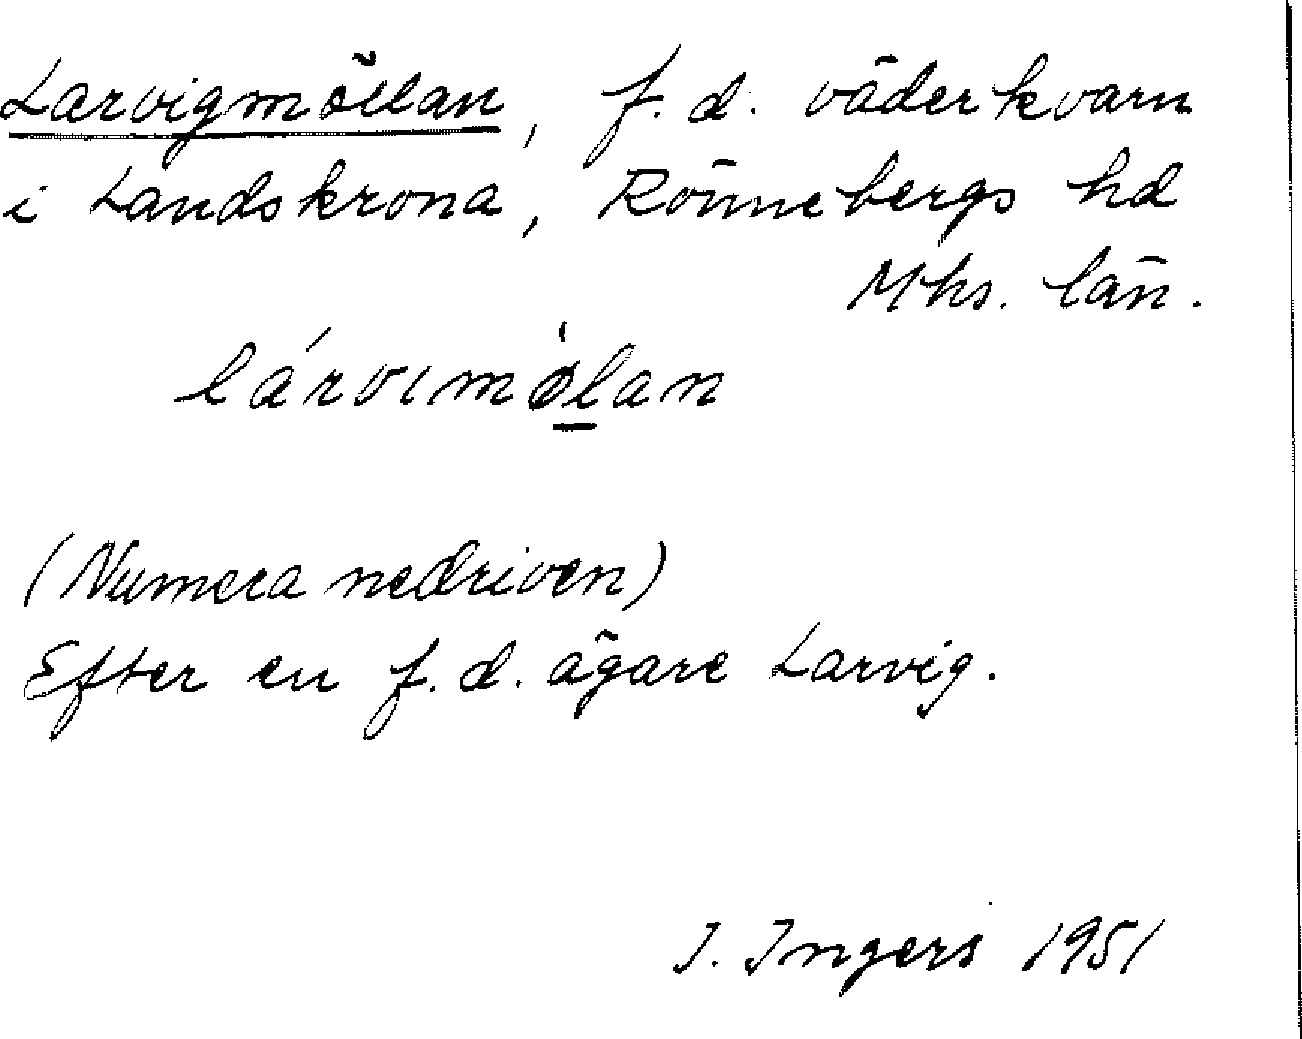 Larvigmöllan, f.d. väderkvarn
i Landskrona, Rönnebergs hd
Mhs. län.
lárvımø̀lan
(Numera nedriven)
Efter en f.d. ägare Larvig.
I. Ingers 1951